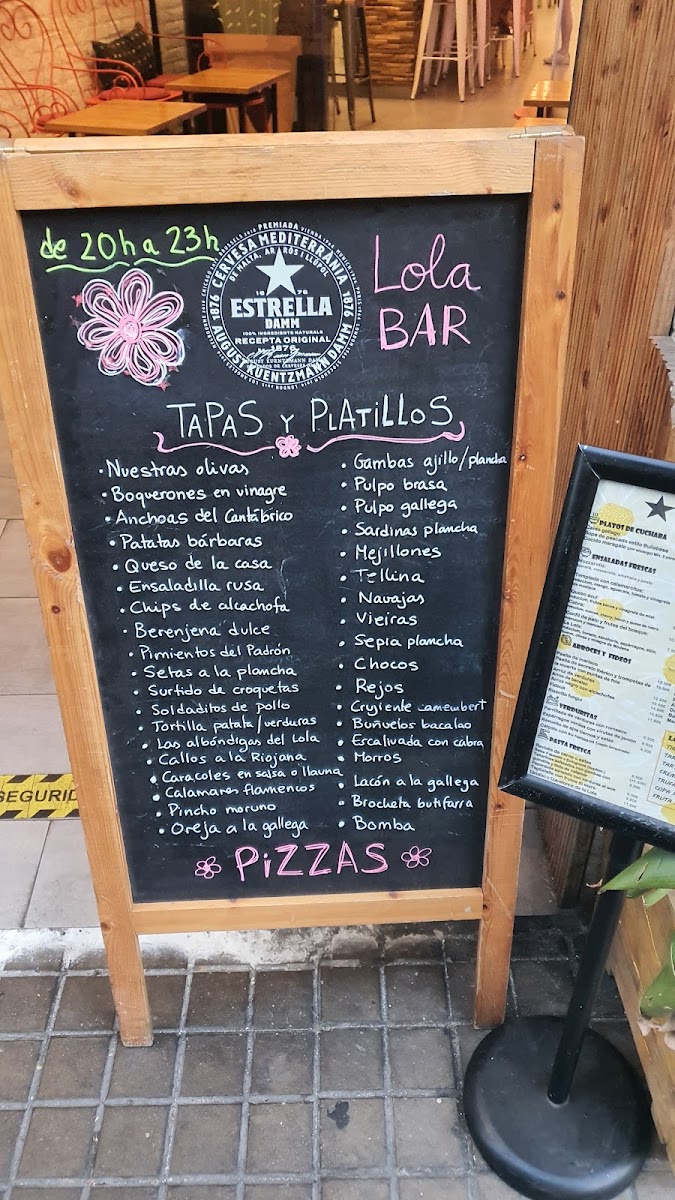 de 20h a 23h
PREMIADA
CERVESA MEDITERRÀNIA
DE MALTA, ARRÒS I LLÚPOL
1876
1876
ESTRELLA
DAMM
100% INGREDIENTS NATURALS
RECEPTA ORIGINAL
1876
AUGUST KUENTZMANN DAMM
Lola
BAR
TAPAS y PLATILLOS
• Nuestras olivas
• Boquerones en vinagre
• Anchoas del Cantábrico
• Patatas bárbaras
• Queso de la casa
• Ensaladilla rusa
• Chips de alcachofa
• Berenjena dulce
• Pimientos del Padrón
• Setas a la plancha
• Surtido de croquetas
• Soldaditos de pollo
• Tortilla patata/verduras
• Las albóndigas del Lola
• Callos a la Riojana
• Caracoles en salsa o llauna
• Calamares flamencos
• Pincho moruno
• Oreja a la gallega
• Gambas ajillo/plancha
• Pulpo brasa
• Pulpo gallega
• Sardinas plancha
• Mejillones
• Tellina
• Navajas
• Vieiras
• Sepia plancha
• Chocos
• Rejos
• Crujiente camembert
• Buñuelos bacalao
• Escalivada con cabra
• Morros
• Lacón a la gallega
• Brocheta butifarra
• Bomba
PIZZAS
SEGURID
PLATOS DE CUCHARA
ENSALADAS FRESCAS
ARROCES Y FIDEOS
VERDURITAS
PASTA FRESCA